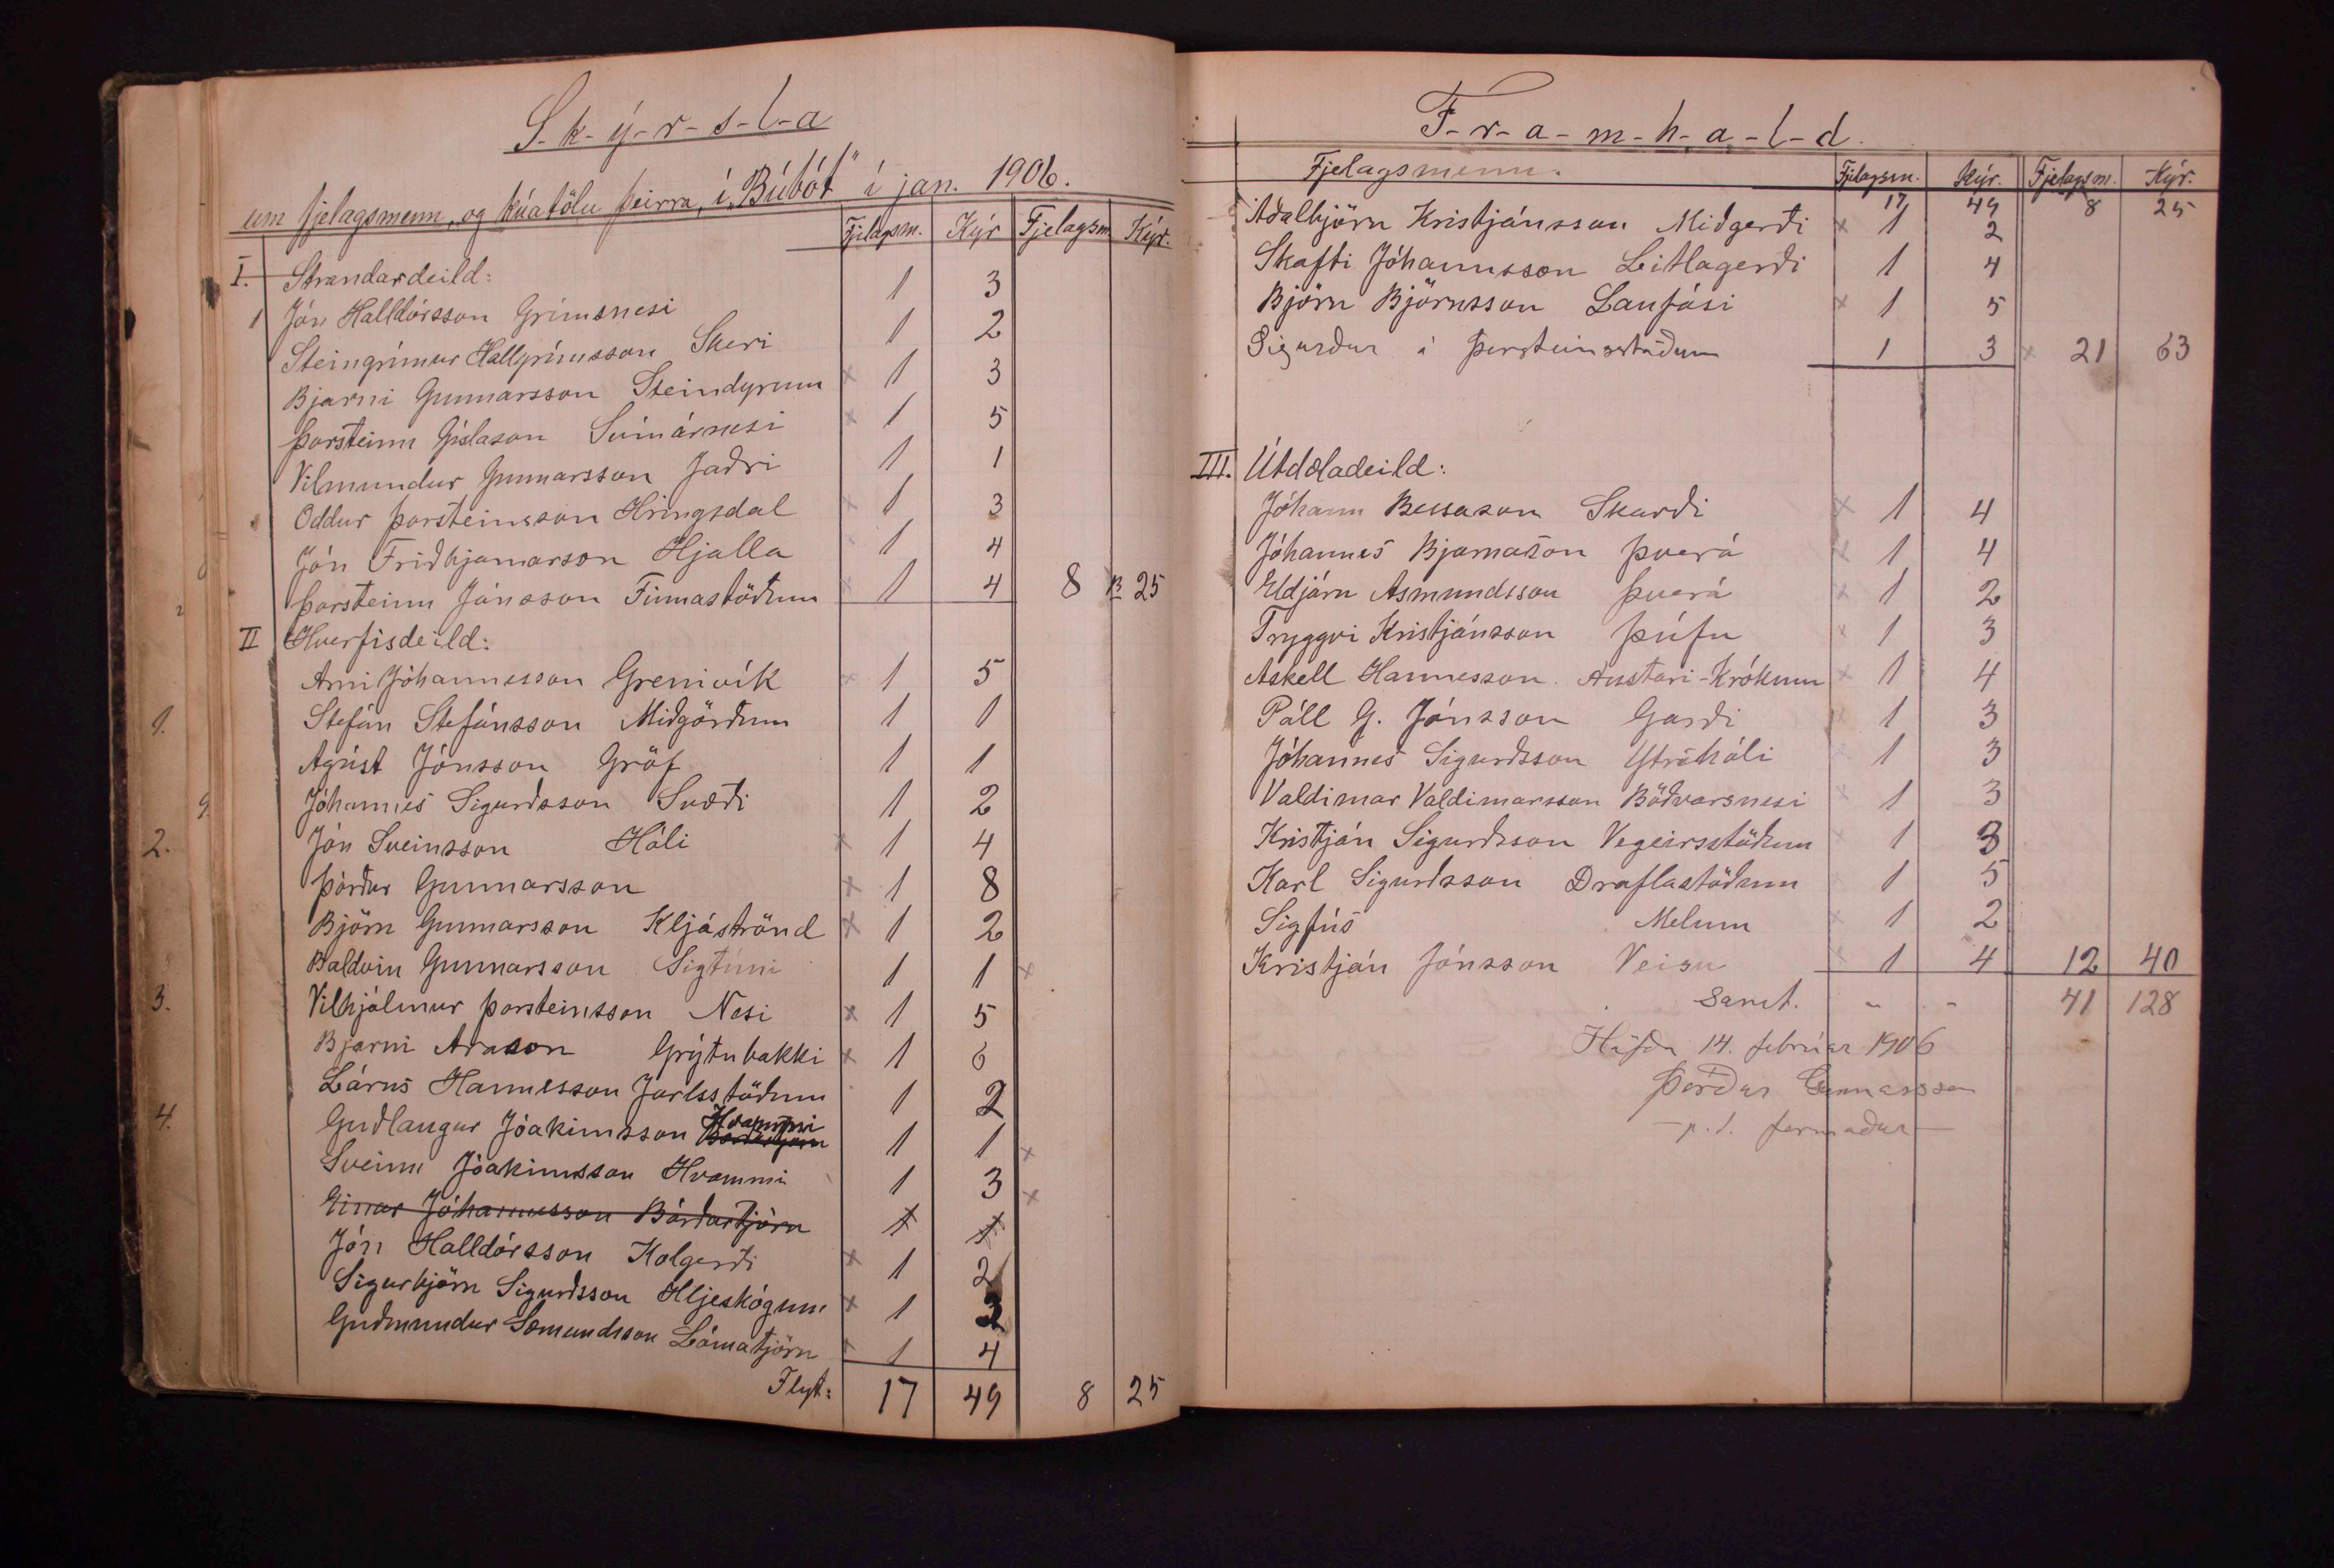 S-k-ý-r-s-l-a
um fjelagsmenn, og kúatölu þeirra, í „Búbót" í jan. 1906.
Fjelagsm. Kýr Fjelagsm. Kýr.
I. Strandardeild:
1 Jón Halldórsson Grímsnesi 1 3
Steingrímur Hallgrímsson Skeri 1 2
Bjarni Gunnarsson Steindyrum × 1 3
Þorsteinn Gíslason Svínárnesi × 1 5
Vilmundur Gunnarsson Jaðri 1 1
Oddur Þorsteinsson Hringsdal × 1 3
Jón Friðbjarnarson Hjalla 1 4
Þorsteinn Jónsson Finnastöðum × 1 4 8 25
II Hverfisdeild:
Arni Jóhannesson Grenivík × 1 5
1. Stefán Stefánsson Miðgörðum 1 1
Agúst Jónsson Gröf 1 1
Jóhannes Sigurðsson Svæði 1 2
2. Jón Sveinsson Hóli × 1 4
Þórður Gunnarsson × 1 8
Björn Gunnarsson Kljáströnd × 1 2
Baldvin Gunnarsson Sigtúni 1 1 ×
3. Vilhjálmur Þorsteinsson Nesi × 1 5
Bjarni Arason Grýtubakki × 1 6
Lárus Hannesson Jarlsstöðum 1 2
4. Guðlaugur Jóakimsson Bárðartjörn Hvammi 1 1 ×
Sveinn Jóakimsson Hvammi 1 3 ×
Einar Jóhannesson Bárðartjörn 1 1
Jón Halldórsson Kolgerði × 1 2
Sigurbjörn Sigurðsson Hljeskógum × 1 2
Guðmundur Sæmundsson Lómatjörn × 1 4
Flyt: 17 49 8 25
F-r-a-m-h-a-l-d.
Fjelagsmenn. Fjelagsm. Kýr. Fjelagsm. Kýr.
17 49 8 25
Aðalbjörn Kristjánsson Miðgerði × 1 2
Skafti Jóhannsson Litlagerði 1 4
Björn Björnsson Laufási × 1 5
Sigurður á Þorsteinsstöðum 1 3 × 21 63
III. Útdæladeild:
Jóhann Bessason Skarði × 1 4
Jóhannes Bjarnason Þverá × 1 4
Eldjárn Asmundsson Þverá × 1 2
Tryggvi Kristjánsson Þúfu × 1 3
Askell Hannesson. Austari-Krókum × 1 4
Páll G. Jónsson Garði × 1 3
Jóhannes Sigurðsson Ytrihóli 1 3
Valdimar Valdimarsson Böðvarsnesi × 1 3
Kristján Sigurðsson Vegeirsstöðum 1 3
Karl Sigurðsson Draflastöðum 1 5
Sigfús Melum × 1 2
Kristján Jónsson Veisu × 1 4 12 40
Samt. - - 41 128
Höfða 14. febrúar 1906
Þórður Gunnarsson
- p.t. formaður -